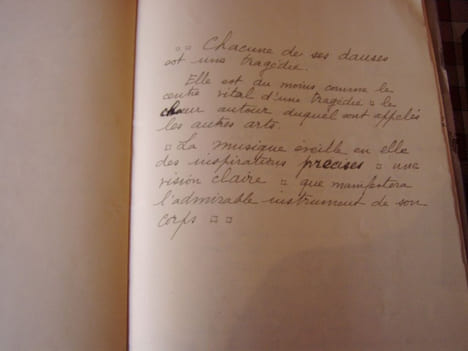 ¤¤ Chacune de ses danses
est une tragédie.
Elle est du moins comme le
centre vital d'une tragédie ¤ le
chœur autour duquel sont appelés
les autres arts.
¤ La musique éveille en elle
des inspirations précises ¤ une
vision claire ¤ que manifestera
l'admirable instrument de son
corps ¤ ¤